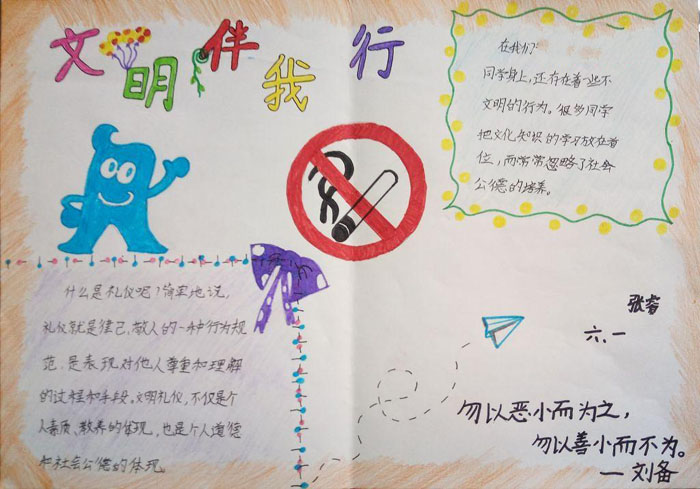 文明伴我行
在我们
同学身上，还存在着一些不
文明的行为。很多同学
把文化知识的学习放在首
位，而常常忽略了社会
公德的培养。
什么是礼仪呢？简单地说，
礼仪就是律己、敬人的一种行为规
范，是表现对他人尊重和理解
的过程和手段。文明礼仪，不仅是个
人素质、教养的体现，也是个人道德
和社会公德的体现。
张睿
六、一
勿以恶小而为之，
勿以善小而不为。
— 刘备